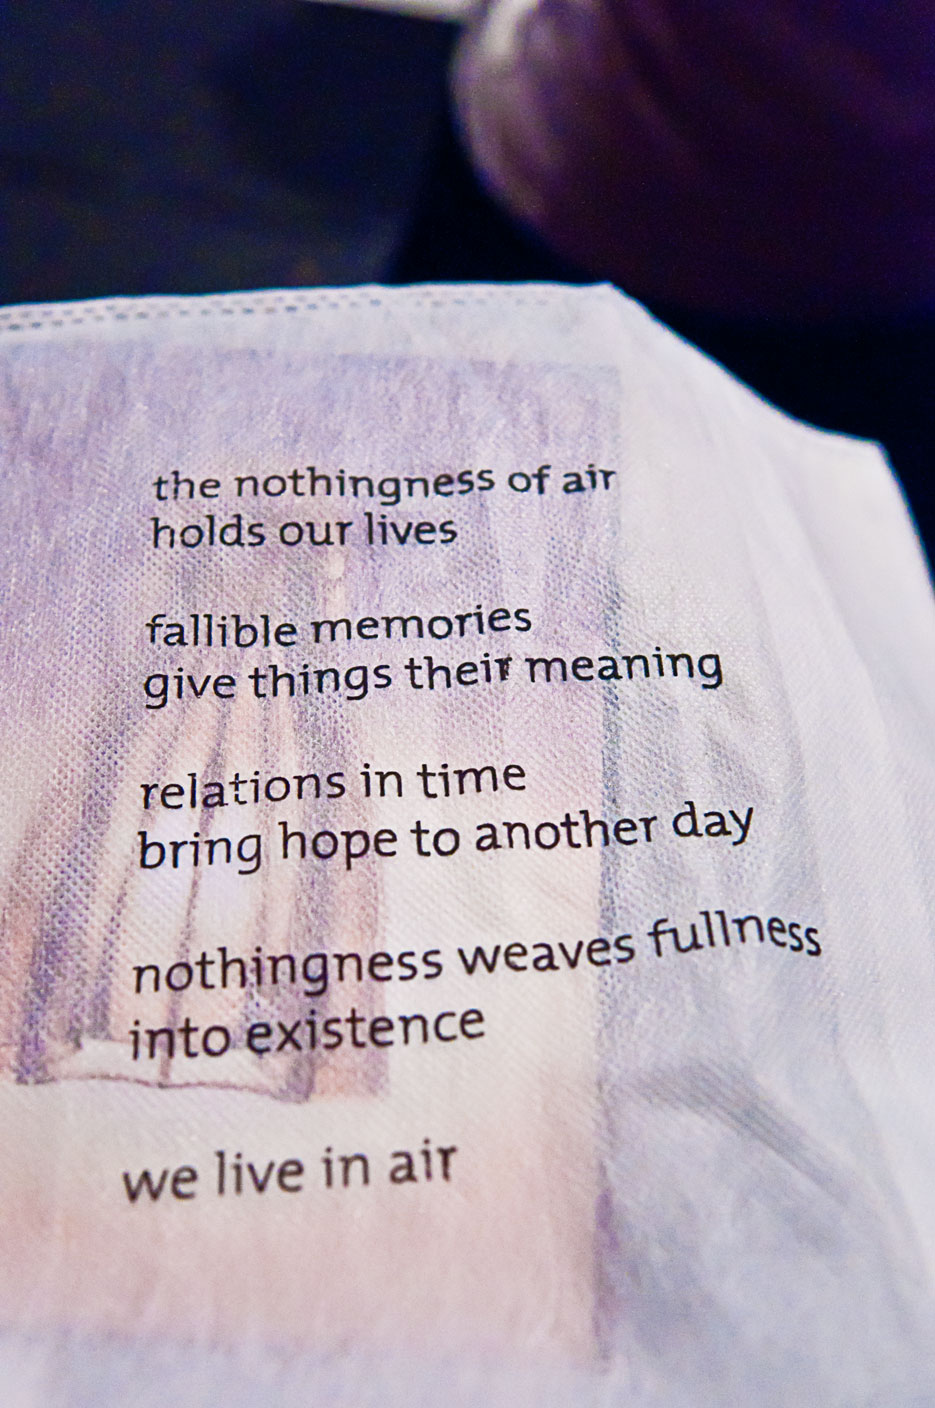 the nothingness of air
holds our lives
fallible memories
give things their meaning
relations in time
bring hope to another day
nothingness weaves fullness
into existence
we live in air